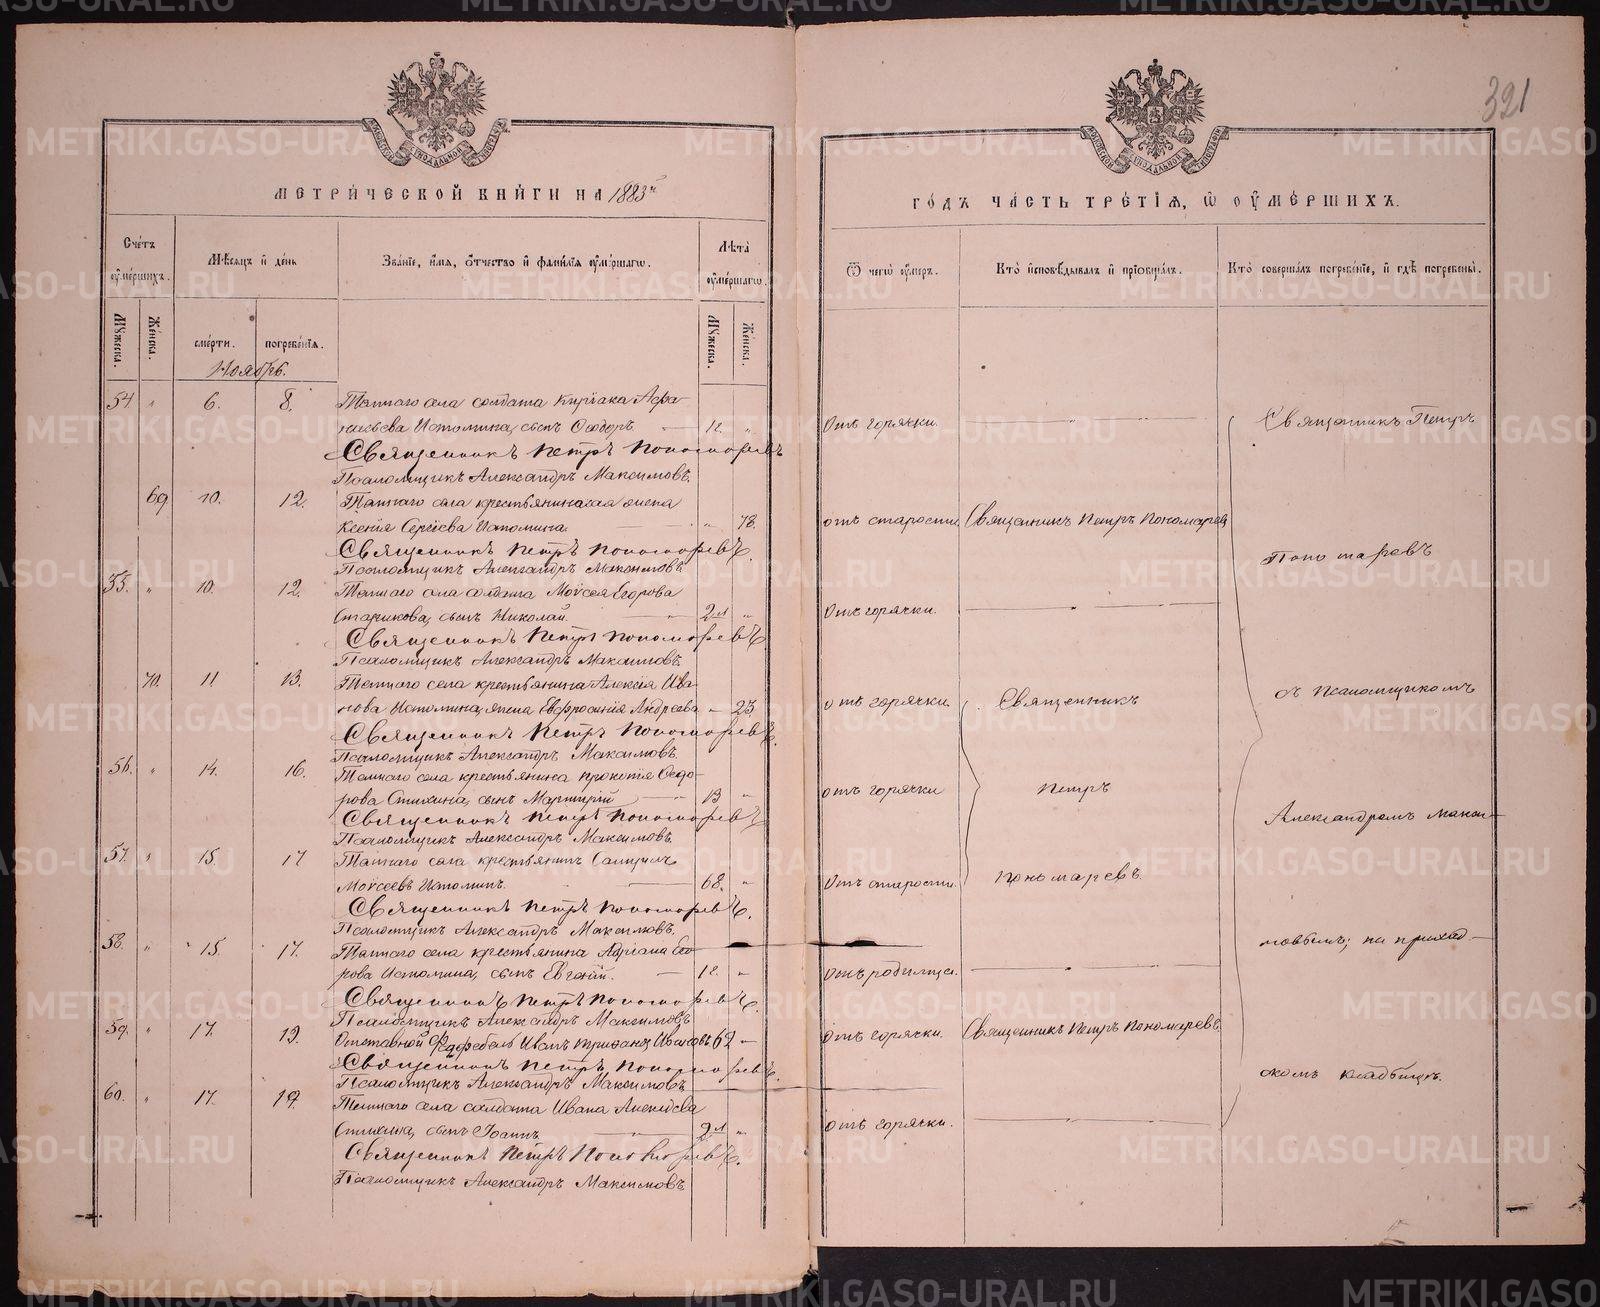 321
МЕТРИЧЕСКОЙ КНИГИ НА 1883й
Счетъ умершихъ.
Мѣсяцъ и день
Званіе, имя, отчество и фамилія умершаго.
Лѣта умершаго.
Мужеска.
Женска.
смерти.
погребенія.
Мужеска.
Женска.
Ноябрь.
54 " 6. 8. Таннаго села солдата Киріака Афа-
насьева Истомина, сынъ Ѳеодоръ. — 1г. "
Священникъ Петръ Пономаревъ
Псаломщикъ Александръ Максимовъ.
69 10. 12. Таннаго села крестьянинская жена
Ксенія Сергіева Истомина. — " 78.
Священникъ Петръ Пономаревъ.
Псаломщикъ Александръ Максимовъ.
55. " 10. 12. Таннаго села солдата Моѵсея Егорова
Старикова, сынъ Николай. — 2м "
Священникъ Петръ Пономаревъ
Псаломщикъ Александръ Максимовъ.
70. 11 13. Таннаго села крестьянина Алексія Ива-
нова Истомина, жена Евфросинія Андреева — 23.
Священникъ Петръ Пономаревъ.
Псаломщикъ Александръ Максимовъ.
56. " 14. 16. Таннаго села крестьянина Прокопія Ѳедо-
рова Стихина, сынъ Мартирій — 13 "
Священникъ Петръ Пономаревъ
Псаломщикъ Александръ Максимовъ.
57. " 15. 17 Таннаго села крестьянинъ Самуилъ
Моѵсеевъ Истоминъ. — 68. "
Священникъ Петръ Пономаревъ.
Псаломщикъ Александръ Максимовъ.
58. " 15. 17. Таннаго села крестьянина Адріана Его-
рова Истомина, сынъ Евгеній. — 1г. "
Священникъ Петръ Пономаревъ.
Псаломщикъ Александръ Максимовъ
59. " 17. 19. Отставной Фелдфебель Иванъ 62 —
Священникъ Петръ Пономаревъ.
Псаломщикъ Александръ Максимовъ
60. " 17. 19. Таннаго села солдата Ивана Алексѣева
Стихина, сынъ Іоаннъ. — 2м "
Священникъ Петръ Пономаревъ.
Псаломщикъ Александръ Максимовъ
ГОДЪ ЧАСТЬ ТРЕТІЯ, Ѡ ОУМЕРШИХЪ.
Ѿ чего умеръ.
Кто исповѣдывалъ и пріобщалъ.
Кто совершалъ погребеніе, и гдѣ погребены.
Отъ горячки. —
отъ старости. Священникъ Петръ Пономаревъ
Отъ горячки. —
отъ горячки. Священникъ
отъ горячки Петръ
Отъ старости. Пономаревъ.
отъ родимца. —
отъ горячки. Священникъ Петръ Пономаревъ.
отъ горячки. —
Священникъ Петръ
Пономаревъ
съ псаломщикомъ
Александромъ Макси-
мовымъ; на приход-
скомъ кладбищѣ.
METRIKI.GASO-URAL.RU